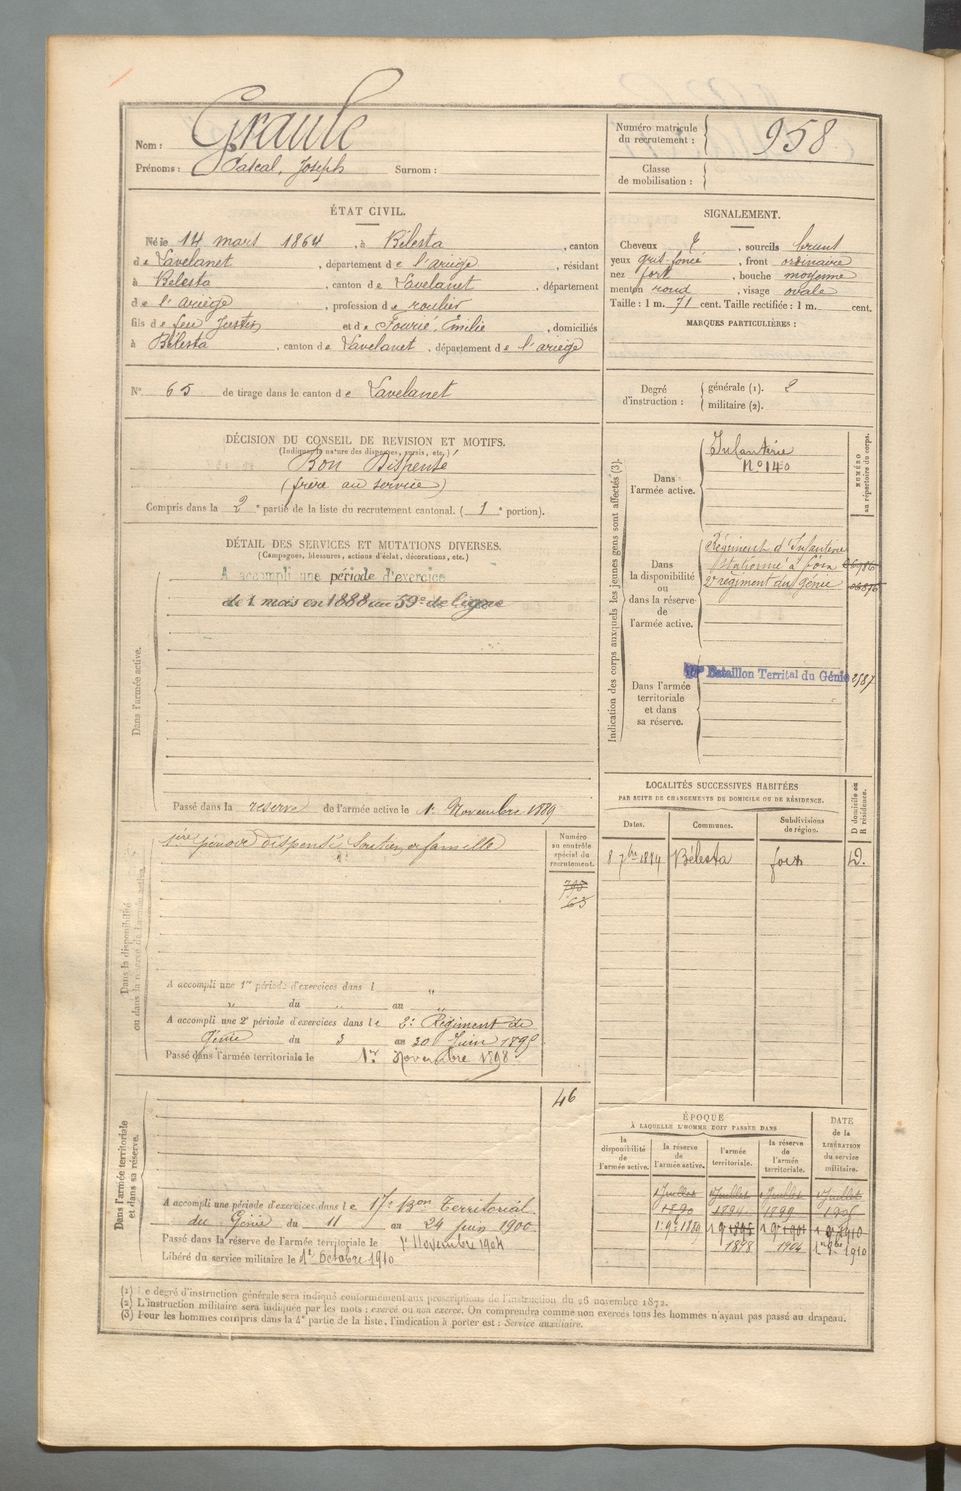 Nom : Graule
Prénoms : Pascal, Joseph Surnom :
Numéro matricule du recrutement : 958
Classe de mobilisation :
ÉTAT CIVIL.
Né le 14 mars 1864, à Bélesta, canton
de Lavelanet, département de l'ariège, résidant
à Bélesta, canton de Lavelanet, département
de l'ariège, profession de roulier
fils de feu Justin et de Fourié, Emilie, domiciliés
à Bélesta, canton de Lavelanet, département de l'ariège
SIGNALEMENT.
Cheveux , sourcils brunt
yeux gris-foncé, front ordinaire
nez fort, bouche moyenne
menton rond, visage ovale
Taille : 1 m. 71 cent. Taille rectifiée : 1 m. cent.
MARQUES PARTICULIÈRES :
N° 65 de tirage dans le canton de Lavelanet
Degré d'instruction : générale (1). 2
militaire (2).
DÉCISION DU CONSEIL DE REVISION ET MOTIFS.
(Indiquer la nature des dispenses, sursis, etc.)
Bon Dispensé
(frère au service)
Compris dans la 2e partie de la liste du recrutement cantonal. (1e portion).
DÉTAIL DES SERVICES ET MUTATIONS DIVERSES.
(Campagnes, blessures, actions d'éclat, décorations, etc.)
Dans l'armée active.
A accompli une période d'exercice
de 1 mois en 1888 au 59e de ligne
Passé dans la reserve de l'armée active le 1er Novembre 1889
Indication des corps auxquels les jeunes gens sont affectés (3).
NUMÉRO au répertoire du corps.
Dans l'armée active.
Infanterie
N° 140
Dans la disponibilité ou dans la réserve de l'armée active.
Régiment d'Infanterie
stationné à foix
2e régiment du génie
Dans l'armée territoriale et dans sa réserve.
Bataillon Territal du Génie
LOCALITÉS SUCCESSIVES HABITÉES
PAR SUITE DE CHANGEMENTS DE DOMICILE OU DE RÉSIDENCE.
Dates. Communes. Subdivisions de région. D domicile ou R résidence.
8 7bre 1884 Bélesta foix D.
Dans la disponibilité ou dans la réserve de l'armée active.
Numéro au contrôle spécial du recrutement.
1ère période dispensé Soutien de famille
65
A accompli une 1re période d'exercices dans l "
" du " au "
A accompli une 2e période d'exercices dans le 2e Régiment de
Génie du 3 au 30 Juin 1895
Passé dans l'armée territoriale le 1er Novembre 1898
Dans l'armée territoriale et dans sa réserve.
46
A accompli une période d'exercices dans le 17e Bon Territorial
du Génie du 11 au 24 juin 1900
Passé dans la réserve de l'armée territoriale le 1er Novembre 1904
Libéré du service militaire le 1er Octobre 1910
ÉPOQUE
À LAQUELLE L'HOMME DOIT PASSER DANS
la disponibilité de l'armée active. la réserve de l'armée active. l'armée territoriale. la réserve de l'armée territoriale. DATE de la LIBÉRATION du service militaire.
1 Juillet 1 Juillet 1 Juillet 1 Juillet
1890 1894 1899 1905
1er 9e 1889 1 9e 1895 1 9e 1901 1 8e 1910
1898 1904 1er 8bre 1910
(1) Le degré d'instruction générale sera indiqué conformément aux prescriptions de l'instruction du 26 novembre 1872.
(2) L'instruction militaire sera indiquée par les mots : exercé ou non exercé. On comprendra comme non exercés tous les hommes n'ayant pas passé au drapeau.
(3) Pour les hommes compris dans la 4e partie de la liste, l'indication à porter est : Service auxiliaire.